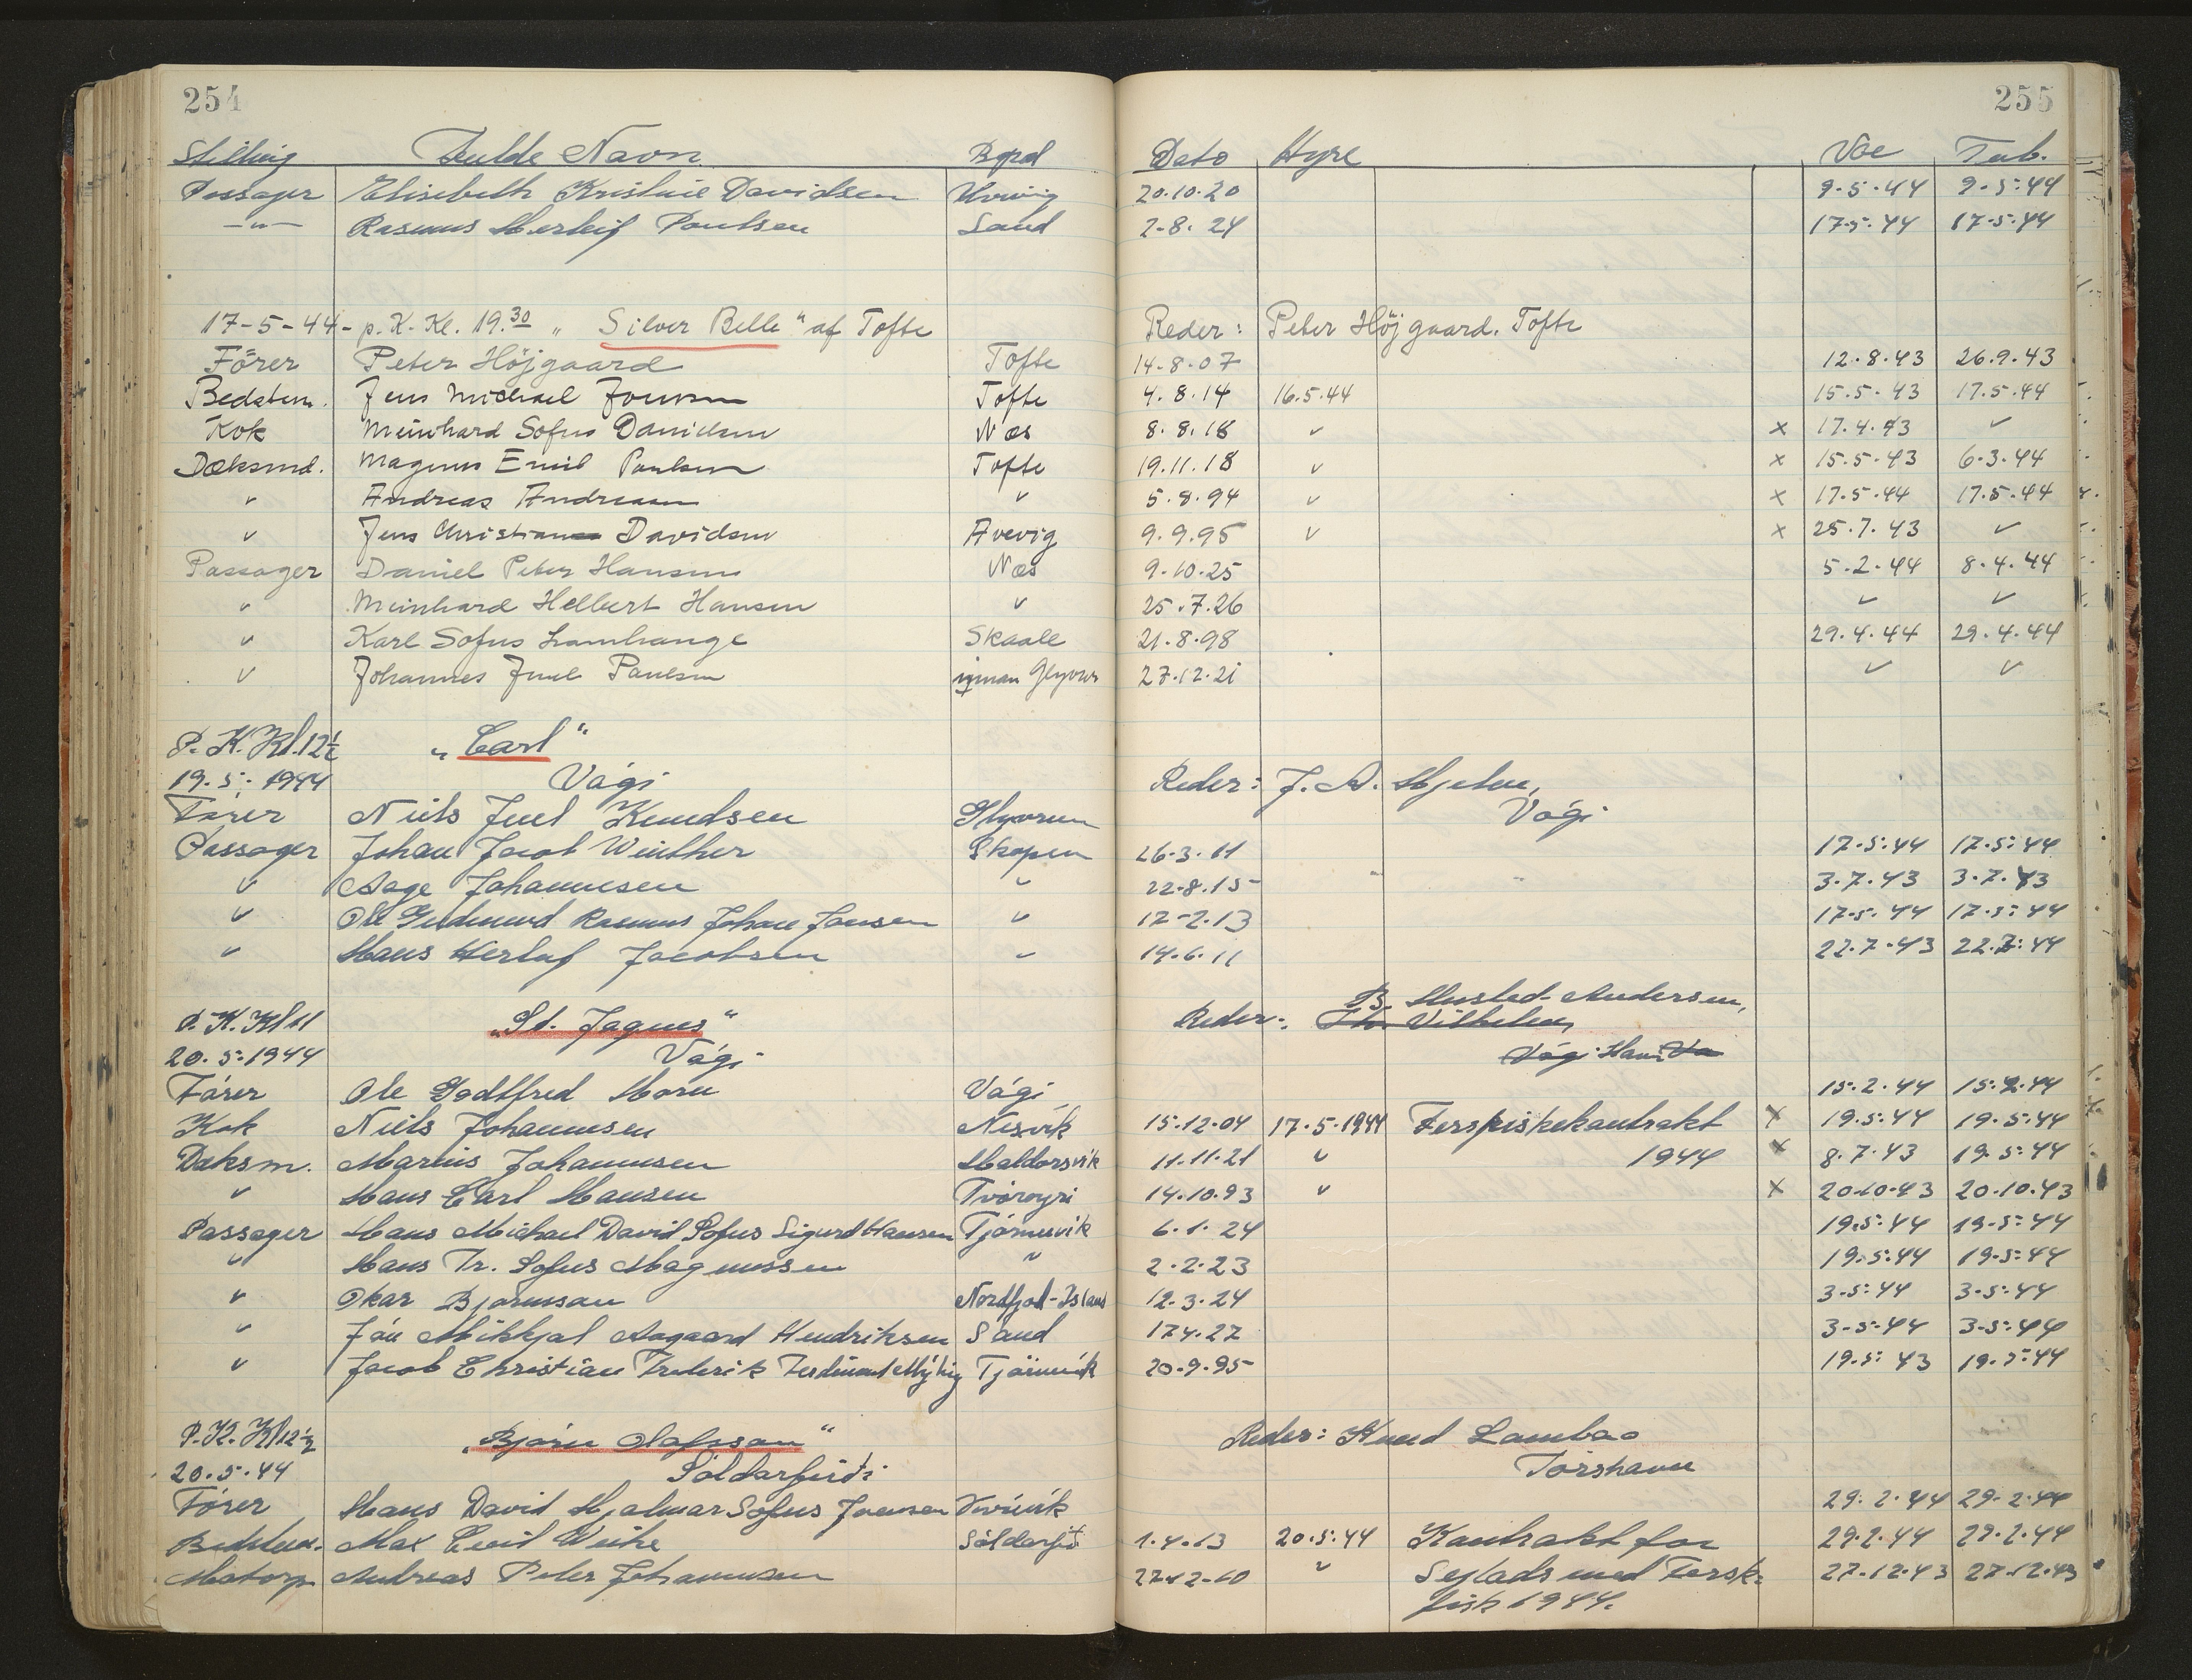 254
255
Stilling Fulde Navn Bopæl Dato Hyre Vac Tub.
Passager Elisebeth Kristine Davidsen 20.10.20 9-5-44 9-5-44
—"— Rasmus Herleif Poulsen Sand 2-8. 24 17-5-44 17-5-44
17-5-44- p. K. Kl. 19.30 „ Silver Belle" af Tofte Reder: Peter Höjgaard. Tofte
Förer Peter Höjgaard Tofte 14-8-07 12.8.43 26.9.43
Bedstem. Jens Michael Joensen Tofte 4.8.14 16.5.44 15.5.43 17.5.44
Kok Meinhard Sofus Danielsen Næs 8.8.18 " x 17.4.43 "
Dæksmd. Magnus Emil Poulsen Tofte 19.11.18 " x 15.5.43 6.3.44
" Andreas Andreasen " 5.8.94 " x 17.5.44 17.5.44
" Jens Christian Davidsen Avevig 9.9.95 " x 25.7.43 "
Passager Daniel Peter Hansen Næs 9.10.25 5.2.44 8.4.44
" Meinhard Helbert Hansen " 25.7.26 " "
" Karl Sofus Lamhauge Skaale 21.8.98 29.4.44 29.4.44
" Johannes Juul Paulsen Glyvrar 27.12.21 " "
P. K. Kl. 12½ „Carl"
19.5. 1944 Vági Reder: J. A. Hjelm,
Vági
Förer Niels Juel Knudsen Glyvrum
Passager Johan Jacob Winther Skopun 26.3.11 17.5.44 17.5.44
" Aage Johannesen " 22.8.15 3.7.43 3.7.43
" Ole Gudmund Rasmus Johan Jensen " 12-2.13 17.5.44 17.5.44
" Hans Herluf Jacobsen " 14.6.11 22.7.43 22.7.44
P. K. Kl 11 „St. Jaques" Reder: B. Husted-Andersen,
Vilhelm,
20.5.1944 Vági Vági Havn
Förer Ole Godtfred Horn Vági 15.2.44 15.2.44
Kok Niels Johannesen Nesvik 15.12.04 17.5.1944 Ferskfiskekontrakt x 19.5.44 19.5.44
Dæksm. Marius Johannesen Haldorsvik 11.11.21 " 1944 x 8.7.43 19.5.44
" Hans Carl Hansen Tvöroyri 14.10.93 " x 20.10.43 20.10.43
Passager Hans Michael David Sofus Sigurd Hansen Tjörnuvik 6.1.24 19.5.44 19.5.44
" Hans Fr. Sofus Magnussen " 2.2.23 19.5.44 19.5.44
" Oskar Bjornsson Nordfjord-Island 12.3.24 3.5.44 3.5.44
" Jón Mikkjal Aagaard Hendriksen Sand 17.4.27 3.5.44 3.5.44
" Jacob Christian Frederik Ferdinand Tjörnuvik 20.9.95 19.5.43 19.5.44
P. K. Kl 12½ „Björn Olafsson" Reder: Knud Lambaa
20.5.44 Söldarfirði Tórshavn
Förer Hans David Hjalmar Sofus Joensen 29.2.44 29.2.44
Bedstem. Max Emil Weihe Söldarfj. 1.4.13 20.5.44 Kontrakt for 29.2.44 29.2.44
Motorp. Andreas Peter Johannesen " Sejlads med Fersk- 27.12.43 27.12.43
fisk 1944.